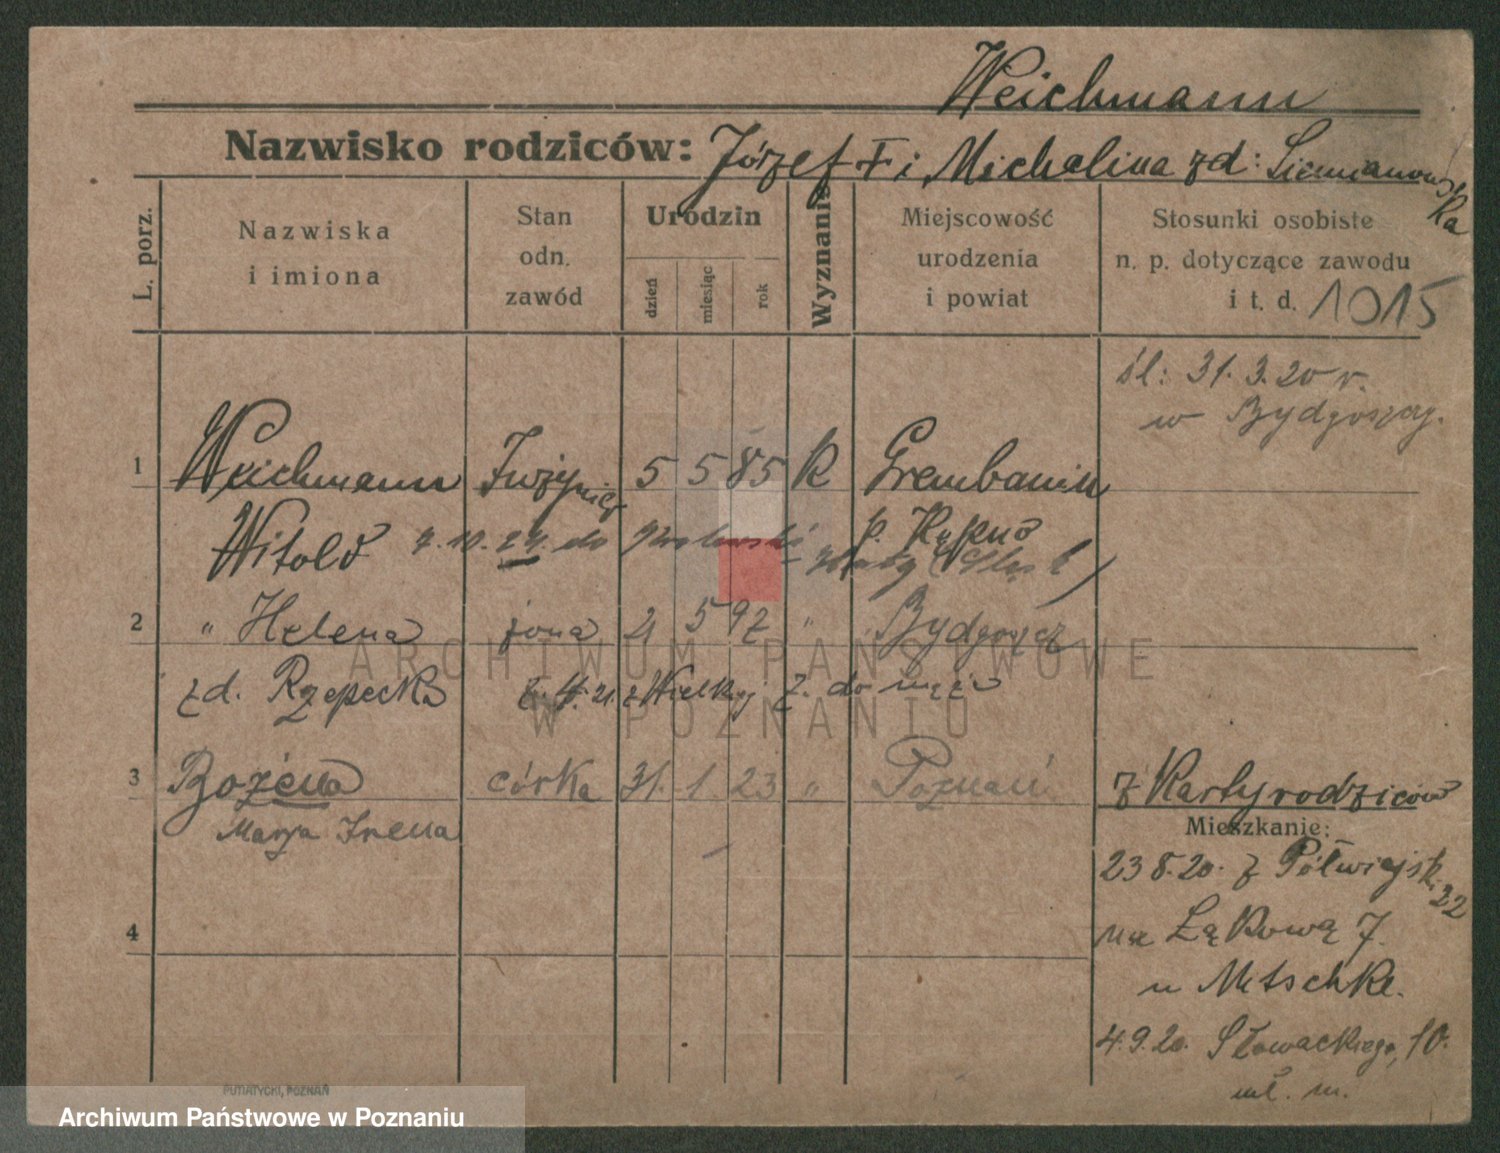 Weichmann
Nazwisko rodziców: Józef † i Michalina zd: Siemianowska
L. porz.
Nazwiska
i imiona
Stan
odn.
zawód
Urodzin
dzień
miesiąc
rok
Wyznanie
Miejscowość
urodzenia
i powiat
Stosunki osobiste
n. p. dotyczące zawodu
i t. d. 1015
śl: 31. 3. 20 r.
w Bydgoszczy.
1 Weichmann Inżynier 5 5 85 K Grembanin
Witold 7. 10. 24. do p. Kępno
2 " Helena żona 21 5 92 " Bydgoszcz
zd. Rzepecka 21. z do męża
3 Bożena córka 31. 1. 23 " Poznań
Marja Irena
z Karty rodziców
Mieszkanie:
23 8. 20. z Półwiejsk. 32
na Łąkową 7.
u Metschke.
4
4. 9. 20. Słowackiego, 10.
wł. m.
PUTIATYCKI, POZNAŃ
ARCHIWUM PAŃSTWOWE
W POZNANIU
Archiwum Państwowe w Poznaniu